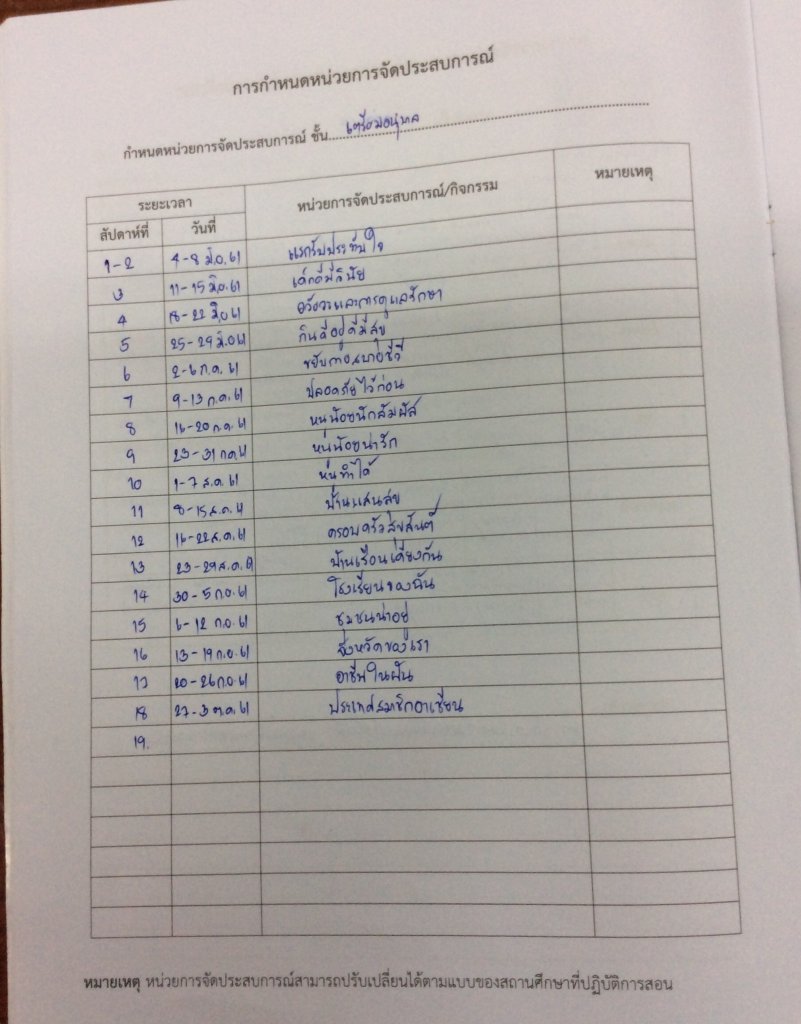 การกำหนดหน่วยการจัดประสบการณ์
กำหนดหน่วยการจัดประสบการณ์ ชั้น เตรียมอนุบาล
ระยะเวลา หน่วยการจัดประสบการณ์/กิจกรรม หมายเหตุ
สัปดาห์ที่ วันที่
1-2 4-8 มิ.ย. 61 แรกรับประทับใจ
3 11-15 มิ.ย. 61 เด็กดีมีวินัย
4 18-22 มิ.ย 61 อวัยวะและการดูแลรักษา
5 25-29 มิ.ย 61 กินดีอยู่ดีมีสุข
6 2-6 ก.ค. 61 ขยับกายสบายชีวี
7 9-13 ก.ค. 61 ปลอดภัยไว้ก่อน
8 16-20 ก.ค. 61 หนูน้อยนักสัมผัส
9 23-31 ก.ค 61 หนูน้อยน่ารัก
10 1-7 ส.ค. 61 หนูทำได้
11 8-15 ส.ค. 61 บ้านแสนสุข
12 16-22 ส.ค. 61 ครอบครัวสุขสันต์
13 23-29 ส.ค. 61 บ้านเรือนเคียงกัน
14 30-5 ก.ย. 61 โรงเรียนของฉัน
15 6-12 ก.ย. 61 ชุมชนน่าอยู่
16 13-19 ก.ย. 61 จังหวัดของเรา
17 20-26 ก.ย. 61 อาชีพในฝัน
18 27-3 ต.ค. 61 ประเทศสมาชิกอาเซียน
19.
หมายเหตุ หน่วยการจัดประสบการณ์สามารถปรับเปลี่ยนได้ตามแบบของสถานศึกษาที่ปฏิบัติการสอน